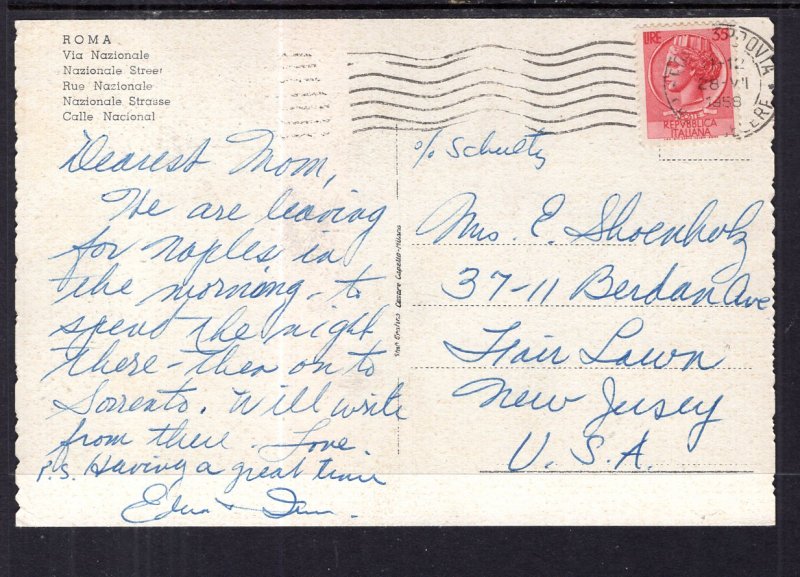 ROMA
Via Nazionale
Nazionale Street
Rue Nazionale
Nazionale Strasse
Calle Nacional
LIRE 35
REPVBBLICA
ITALIANA
1958
Dearest Mom,
We are leaving
for Naples in
the morning - to
spend the night
there - then on to
Sorrento. Will write
from there. Love.
P.S. Having a great time
Edna +
c/o Schultz
Mrs. E. Shoenholz
37-11 Berdan Ave
Fair Lawn
New Jersey
U.S.A.
Cesare Capello - Milano